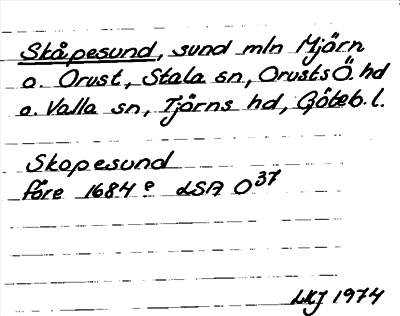 Skåpesund, sund mln Mjörn
o. Orust, Stala sn, Orusts Ö. hd
o. Valla sn, Tjörns hd, Göteb. l.
Skopesund
före 1684? LSA O37
LKJ 1974